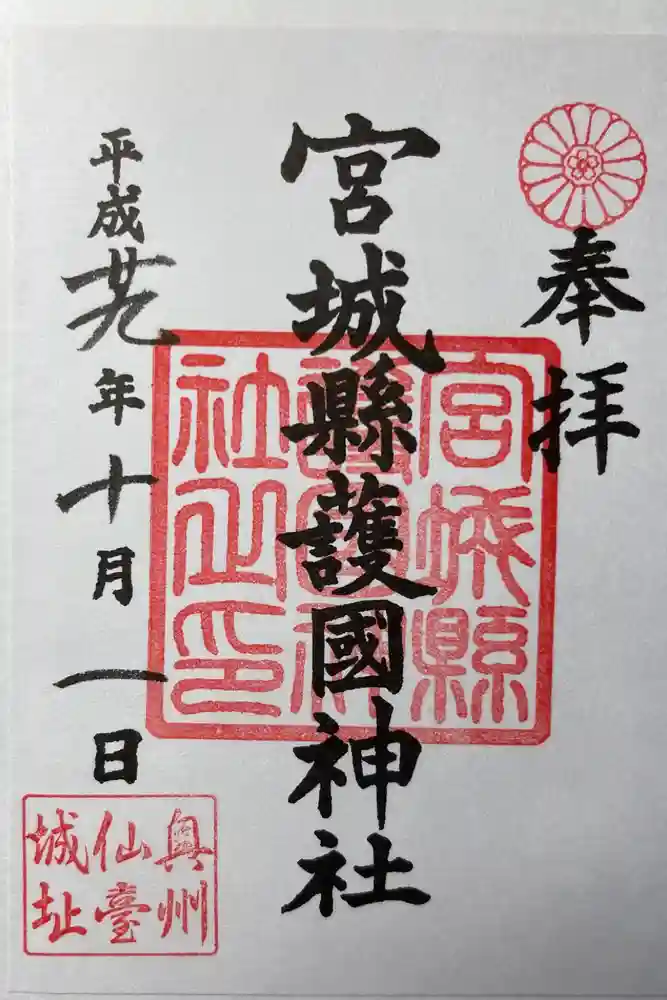 奉拝
宮城縣護國神社
宮城縣
護國神
社之印
平成廿九年十月一日
奥州
仙臺
城址